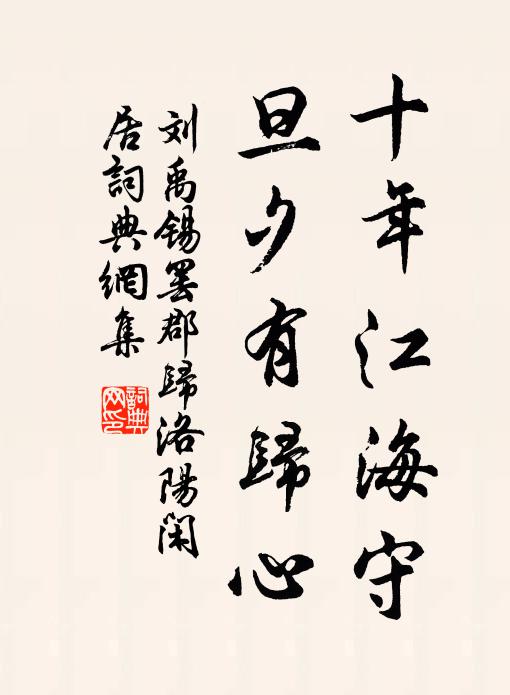 十年江海守
旦夕有歸心
刘禹锡罢郡歸洛陽闲
居詞典網集
詞典网印